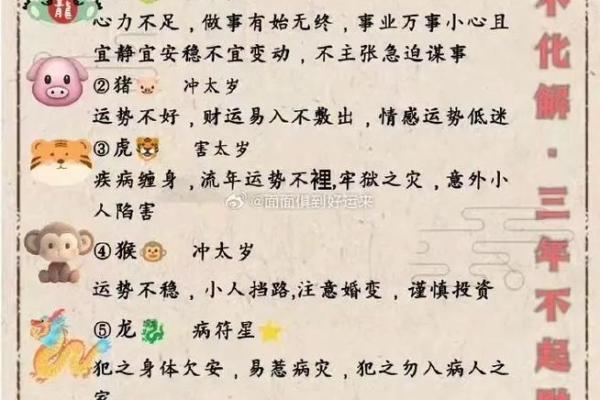 心力不足，做事有始无终，事业万事小心且
宜静宜安稳不宜变动，不主张急迫谋事
②猪 冲太岁
运势不好，财运易入不敷出，情感运势低迷
③虎 害太岁
疾病缠身，流年运势不裡,牢狱之灾，意外小
人陷害
@面面俱到好运来
④猴 冲太岁
运势不稳，小人挡路,注意婚变，谨慎投资
⑤龙 病符星
犯之身体欠安，易惹病灾，犯之勿入病人之
家
不化解·三年不起